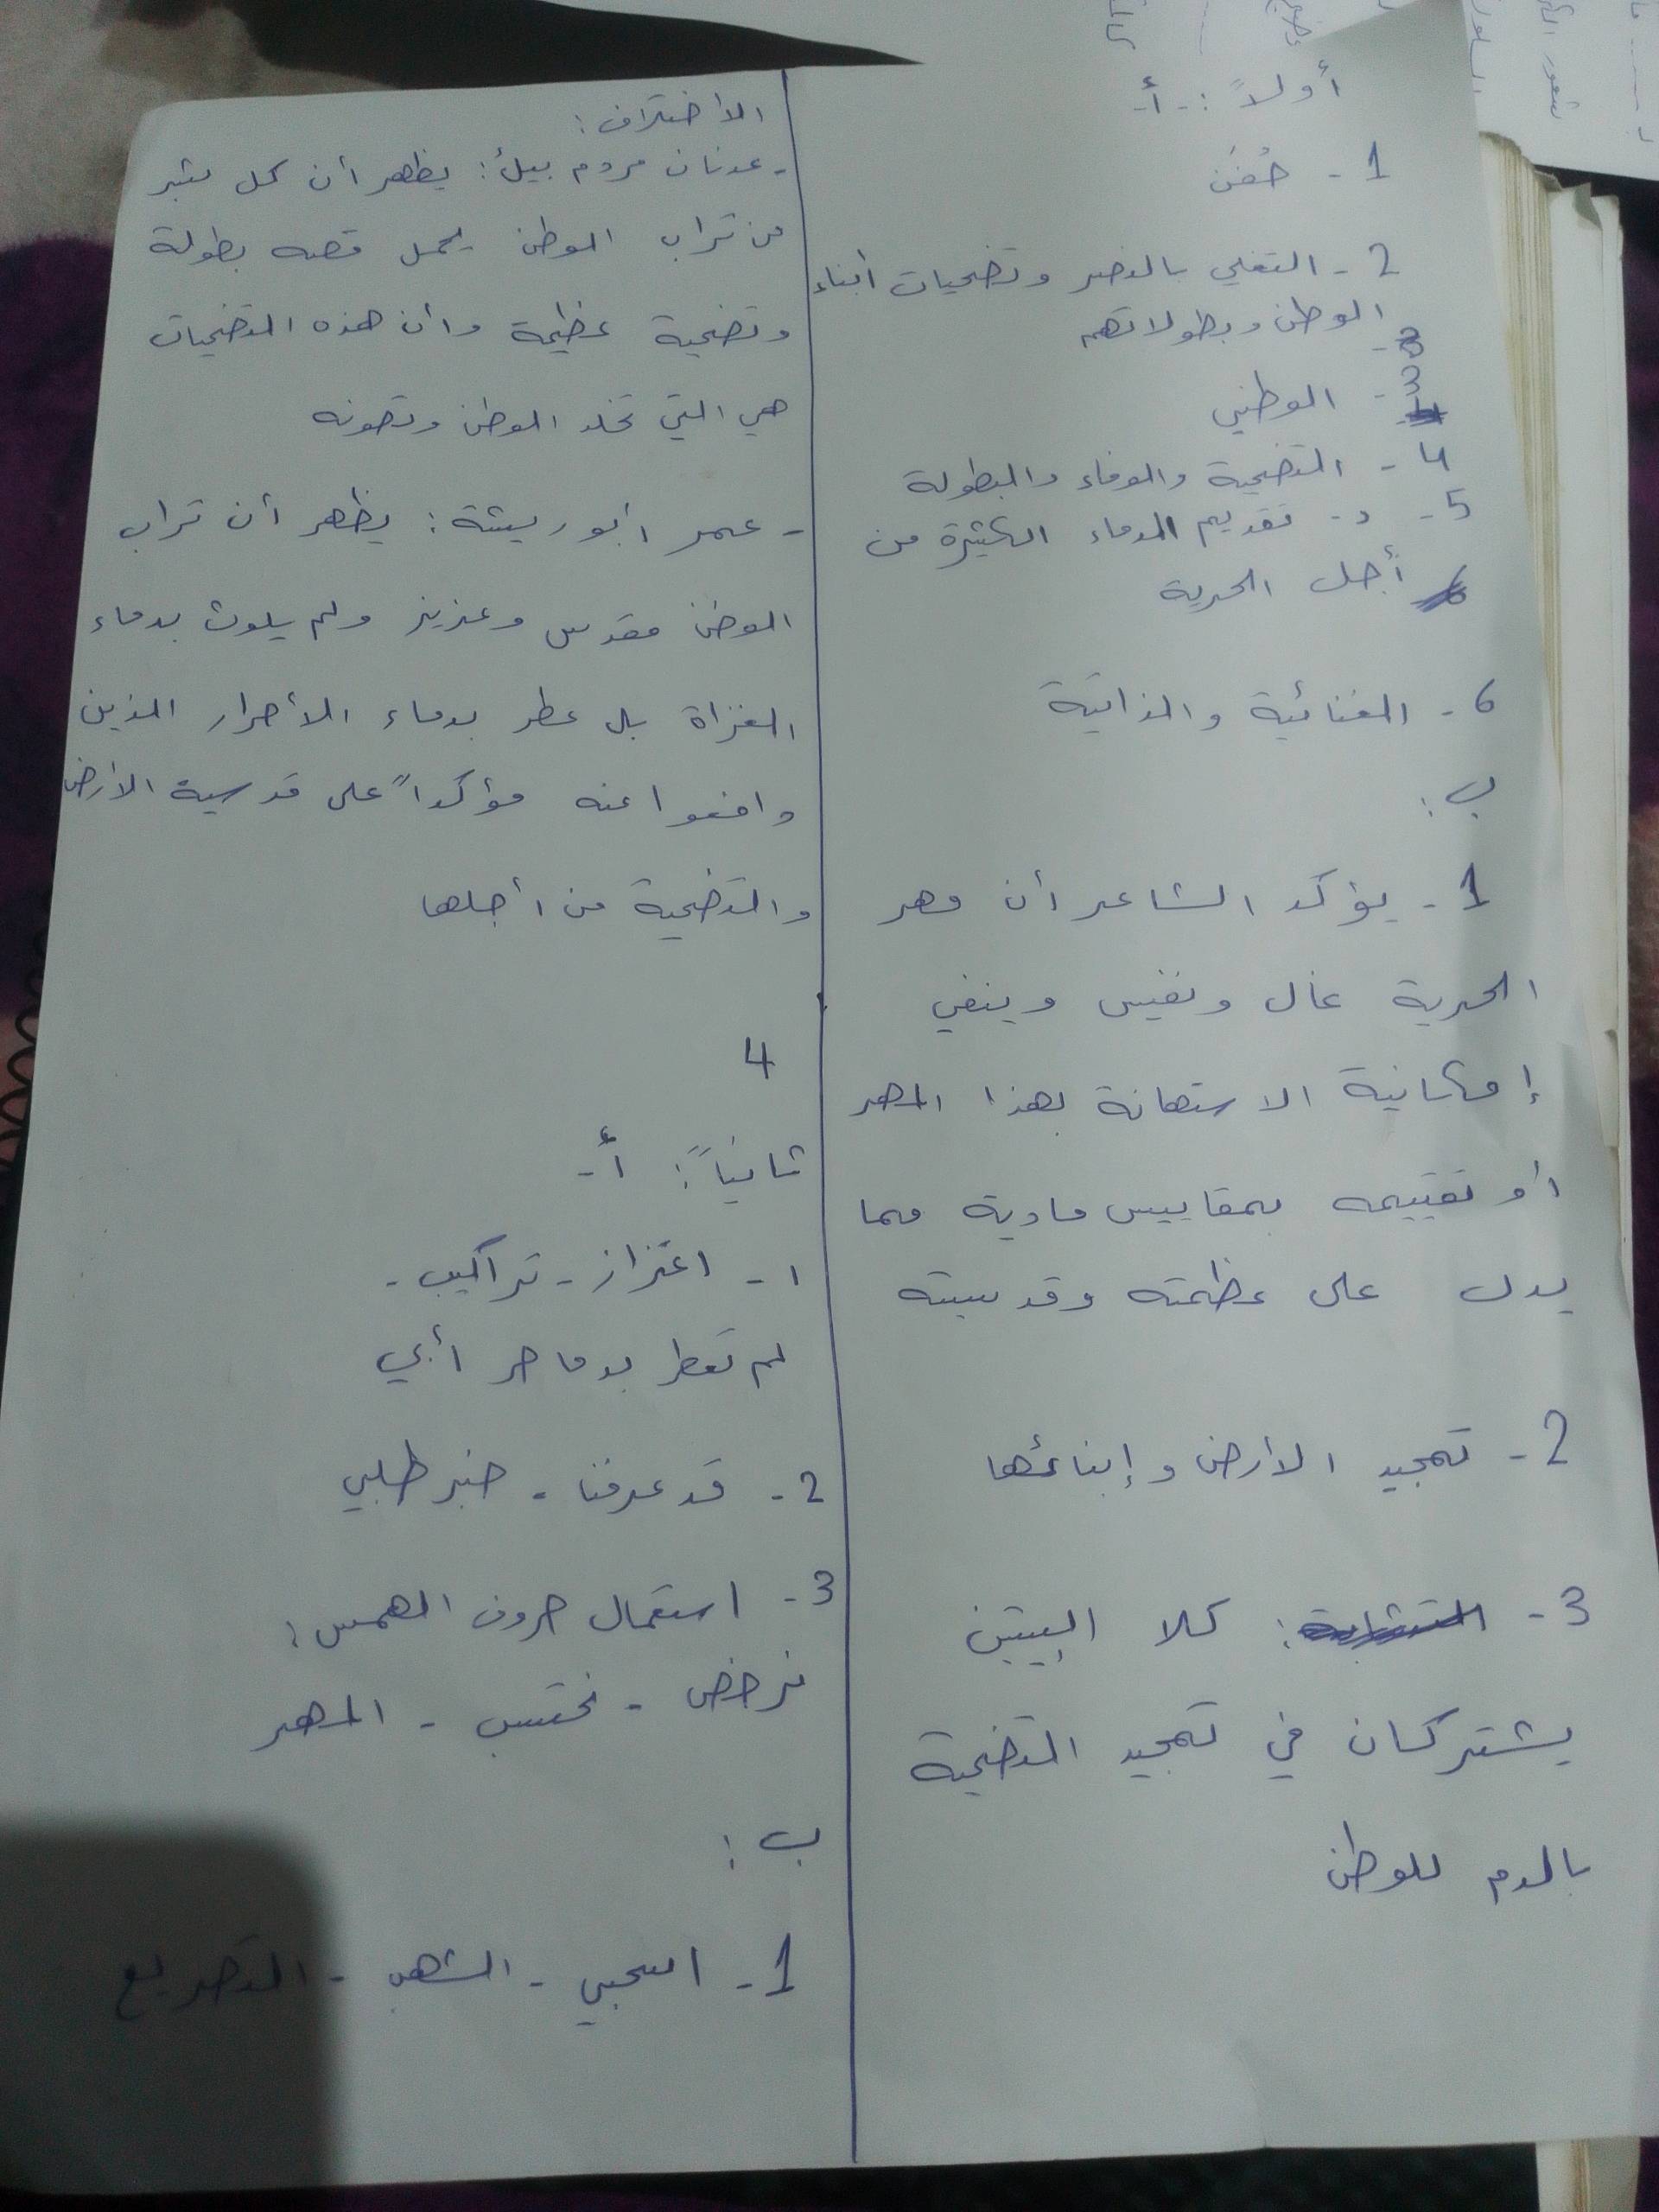 أولاً :- أ-
1 - حُفَن
2 - التغني بالنصر وتضحيات أبناء
الوطن وبطولاتهم
3 - الوطني
4 - التضحية والوفاء والبطولة
5 - د - تقديم الدماء الكثيرة من
أجل الحرية
6 - الغنائية والذاتية
ب :
1 - يؤكد الشاعر أن مهر
الحرية غال ونفيس وينفي
إمكانية الاستهانة بهذا المهر
أو تقييمه بمقاييس مادية مما
يدل على عظمته وقدسيته
2 - تمجيد الأرض وإبنائها
3 - : كلا البيتين
يشتركان في تمجيد التضحية
بالدم للوطن
الاختلاف :
- عدنان مردم بيك : يظهر أن كل شبر
من تراب الوطن يحمل قصه بطولة
وتضحية عظيمة وأن هذه التضحيات
هي التي تخلد الوطن وتصونه
- عمر أبو ريشة : يظهر أن تراب
الوطن مقدس وعزيز ولم يلوث بدماء
الغزاة بل عطر بدماء الأحرار الذين
دافعوا عنه مؤكداً على قدسية الأرض
والتضحية من أجلها
4
ثانياً : أ-
١ - اعتزاز - تراكيب -
لم تعطر بدما حر أبي
2 - قد عرفنا - خبر طلبي
3 - استعمال حروف الهمس :
نرخص - نحتسب - المهر
ب :
1 - اسحبي - الشهب - التصريع